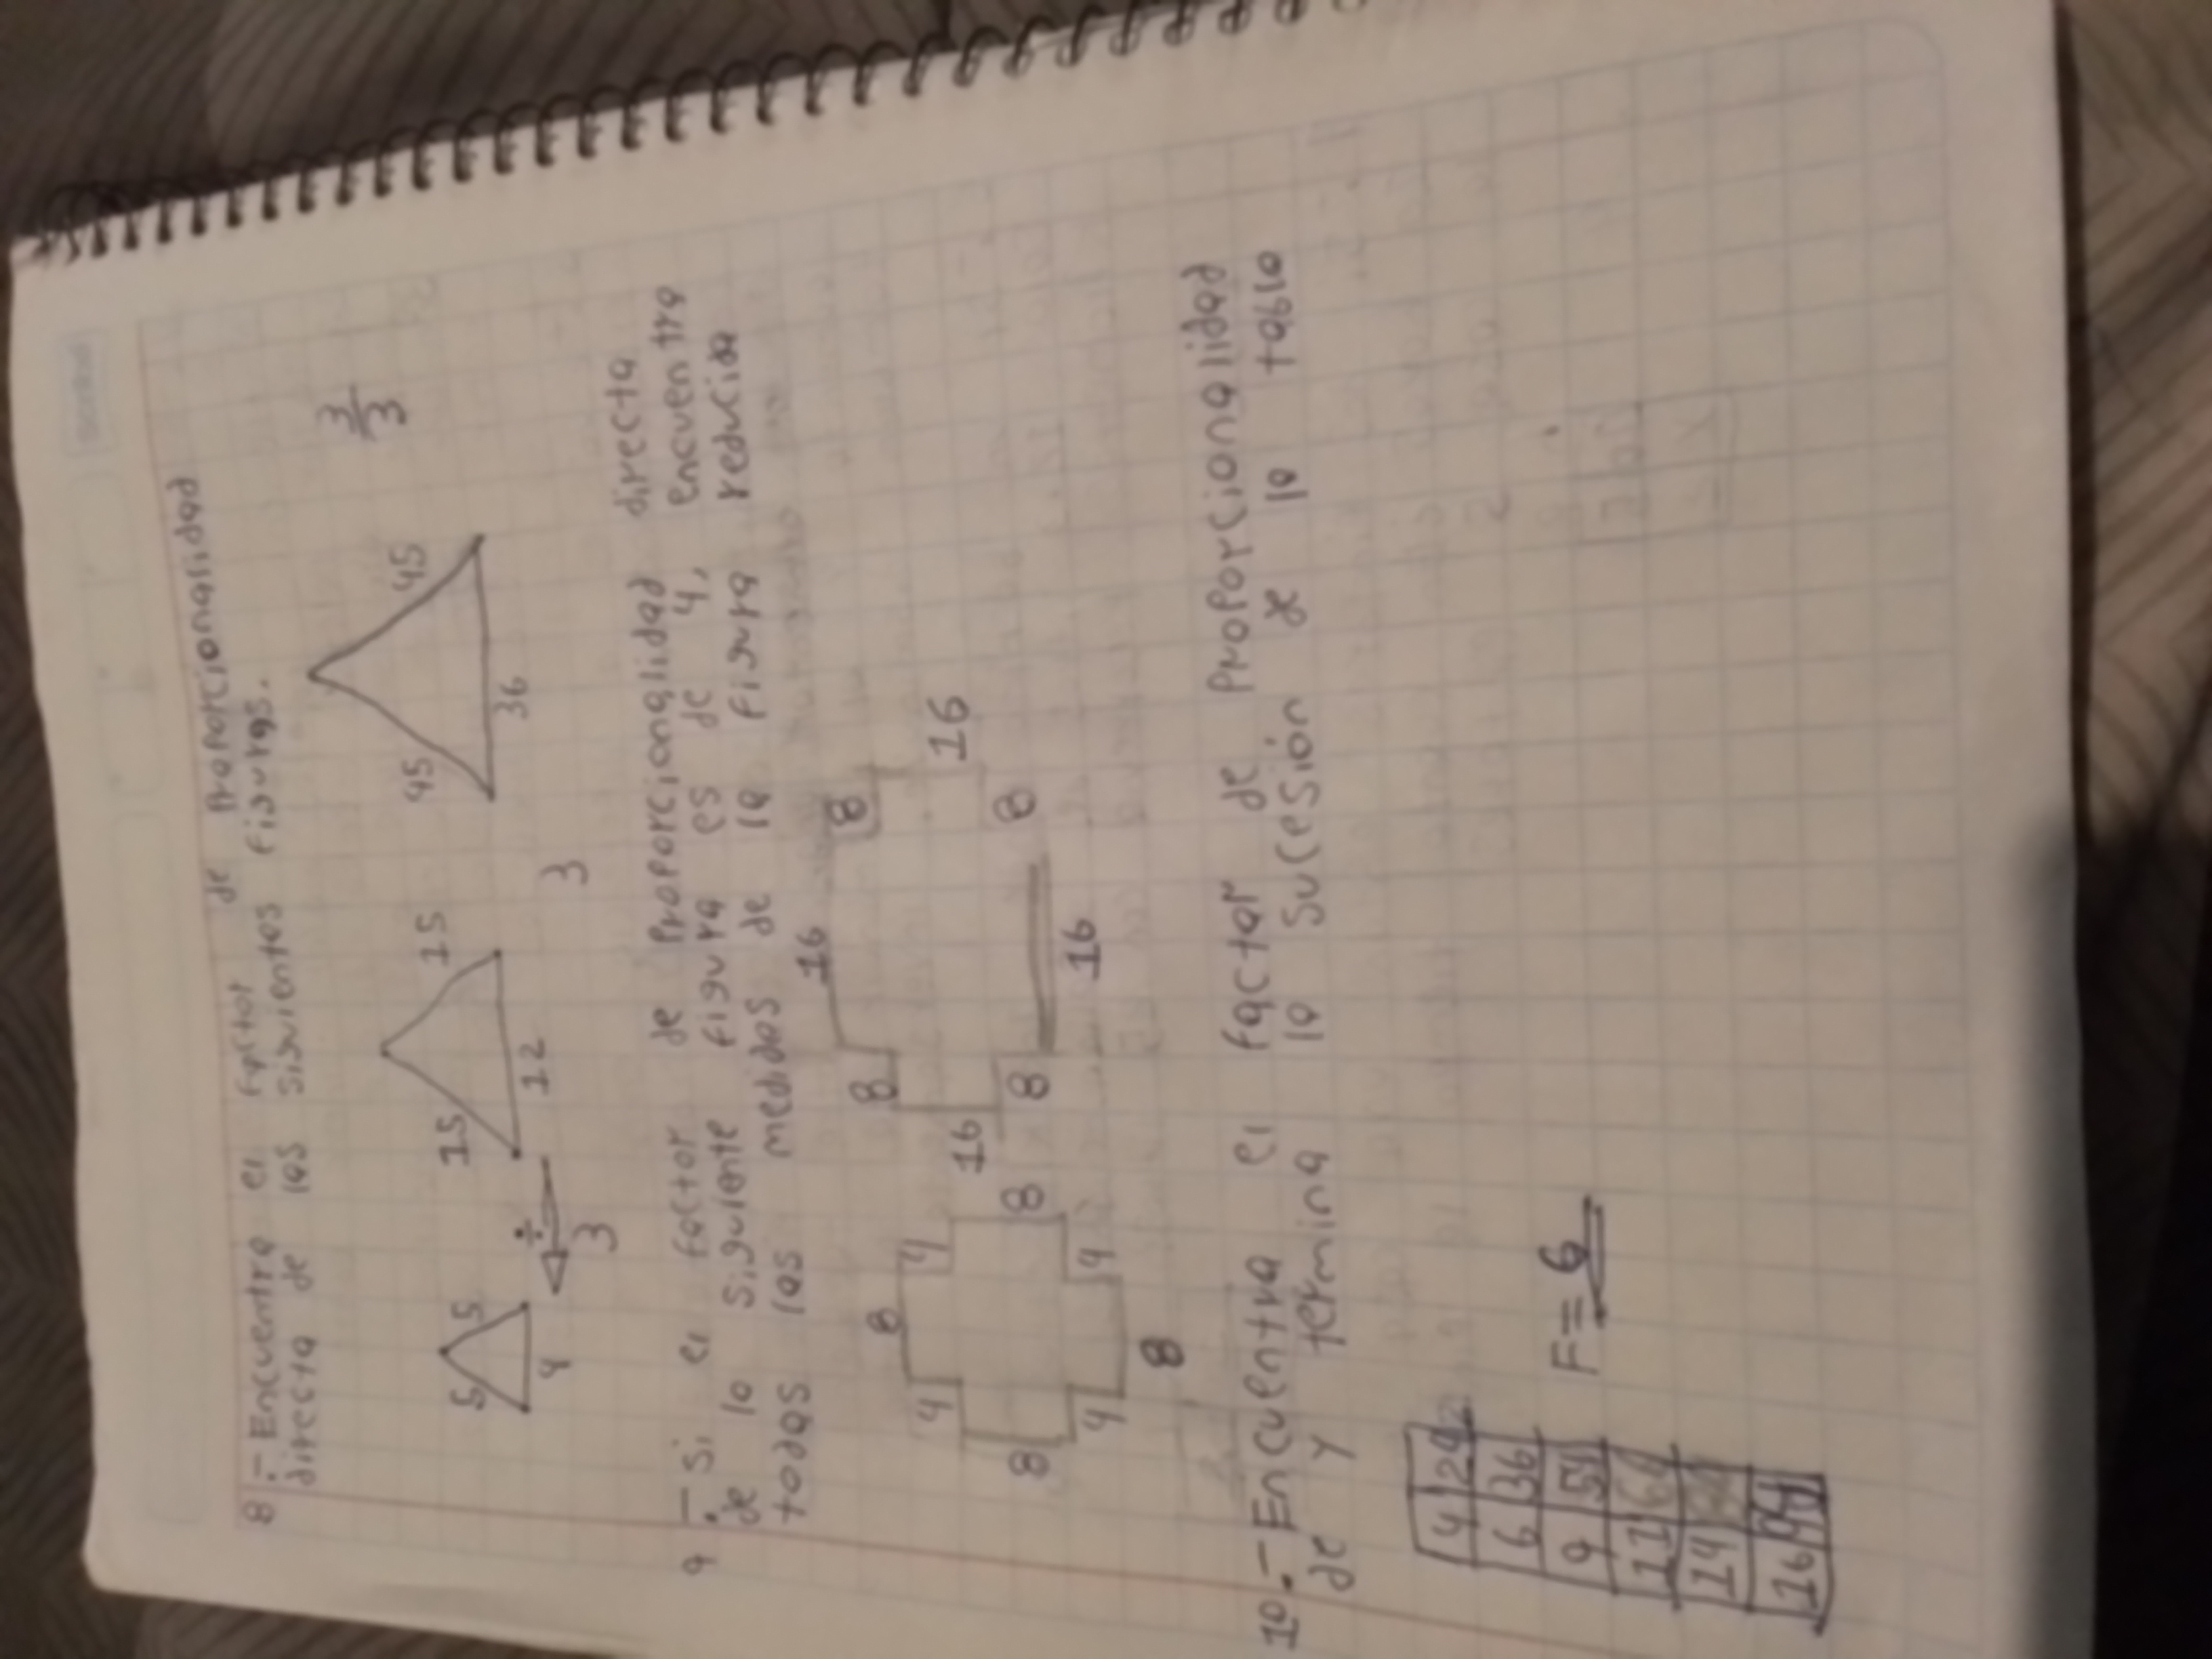 8.- Encuentra el factor de proporcionalidad
directa de las siguientes figuras.
5 5 4
÷ 3
15 15 12
3
45 45 36
3/3
9.- Si el factor de proporcionalidad directa
de la siguiente figura es de 4, encuentra
todas las medidas de la figura reducida
8 4 4 8 4 4 8 8
16 8 8 16 8 8 16 16
10.- Encuentra el factor de proporcionalidad
de y termina la sucesión de la tabla
4 24
6 36
9 54
11
14
16
F=6